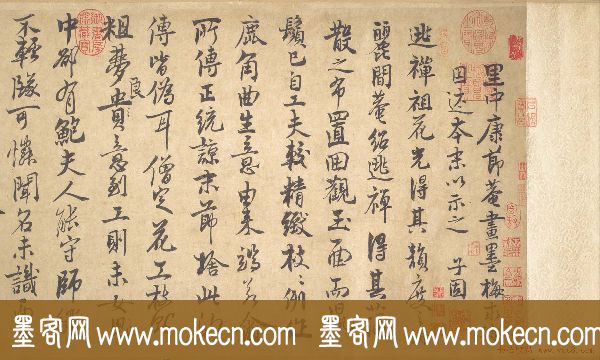 里中康節菴畫墨梅求
因述本末以示之 子固
逃禪祖花光得其韻度
麗閒菴紹逃禪得其
散之布置回觀玉面而
鬚已自工夫較精緻枝〻倒作
鹿角曲生意由來端若
所傳正統諒末節捨此的
傳皆偽耳僧定花工枝則
粗夢良意到工則未女
中却有鮑夫人能守師
不輕墜可憐聞名未識
墨客网 www.mokecn.com 墨客网 www.mokecn.com